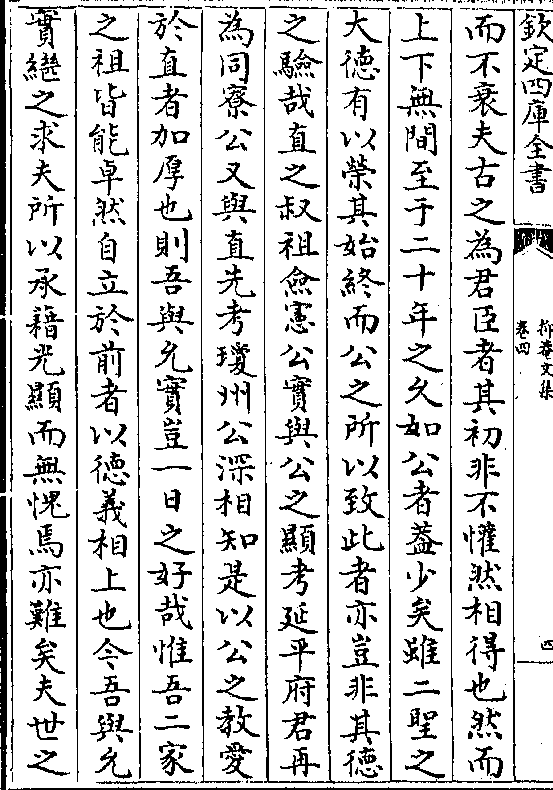 欽定四庫全書
抑菴文集
卷四
四
而不衰夫古之為君臣者其初非不懽然相得也然而
上下無間至于二十年之久如公者葢少矣雖二聖之
大徳有以榮其始終而公之所以致此者亦豈非其徳
之驗哉直之叔祖僉憲公實與公之顯考延平府君再
為同寮公又與直先考瓊州公深相知是以公之教愛
於直者加厚也則吾與允實豈一日之好哉惟吾二家
之祖皆能卓然自立於前者以徳義相上也今吾與允
實繼之求夫所以承藉光顯而無愧焉亦難矣夫世之